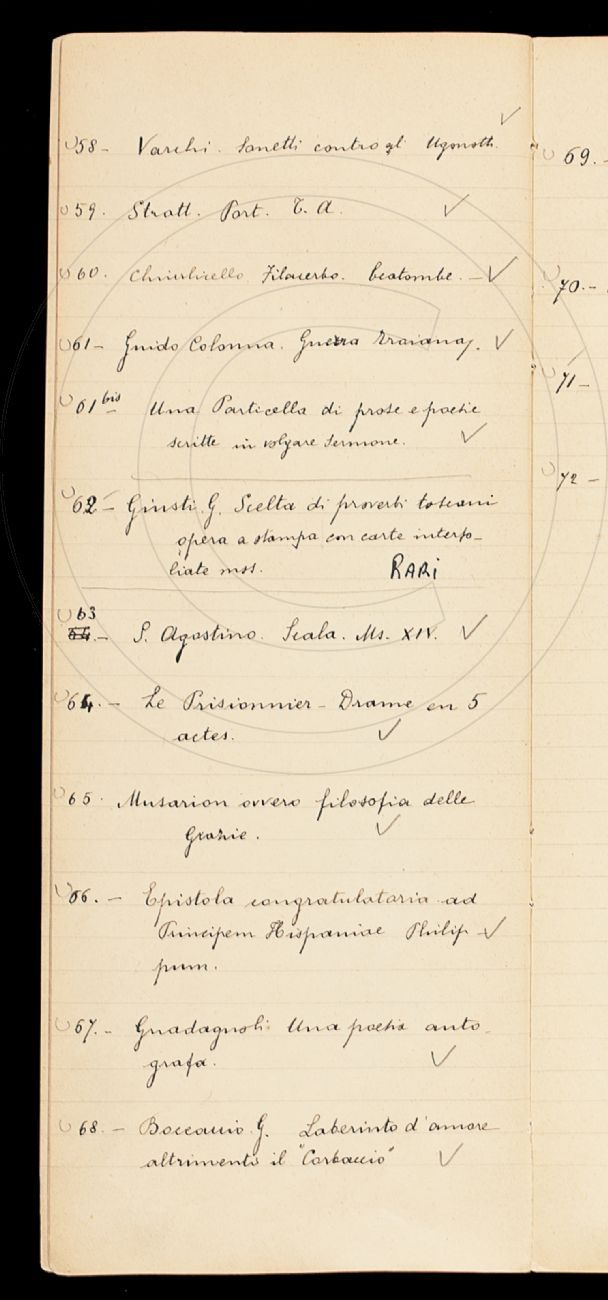 58 - Varchi. Sonetti contro gl' Ugonotti.
59. Stratt. Port. T. A.
60. Filacerbo. Ecatombe. -
61 - Guido Colonna. Guerra Troiana.
61 bis Una Particella di prose e poesie
scritte in volgare sermone.
62 - Giusti G. Scelta di proverbi toscani
opera a stampa con carte interfo-
liate mss. RARI
63
- S. Agostino. Scala. Ms. XIV.
64. - Le Prisionnier - Drame en 5
actes.
65. Musarion ovvero filosofia delle
Grazie.
66. - Epistola congratulataria ad
Principem Hispaniae Philip-
pum.
67. - Guadagnoli Una poesia auto-
grafa.
68. - Boccaccio G. Laberinto d'amore
altrimenti il "Corbaccio"
69. -
70. -
71 -
72 -